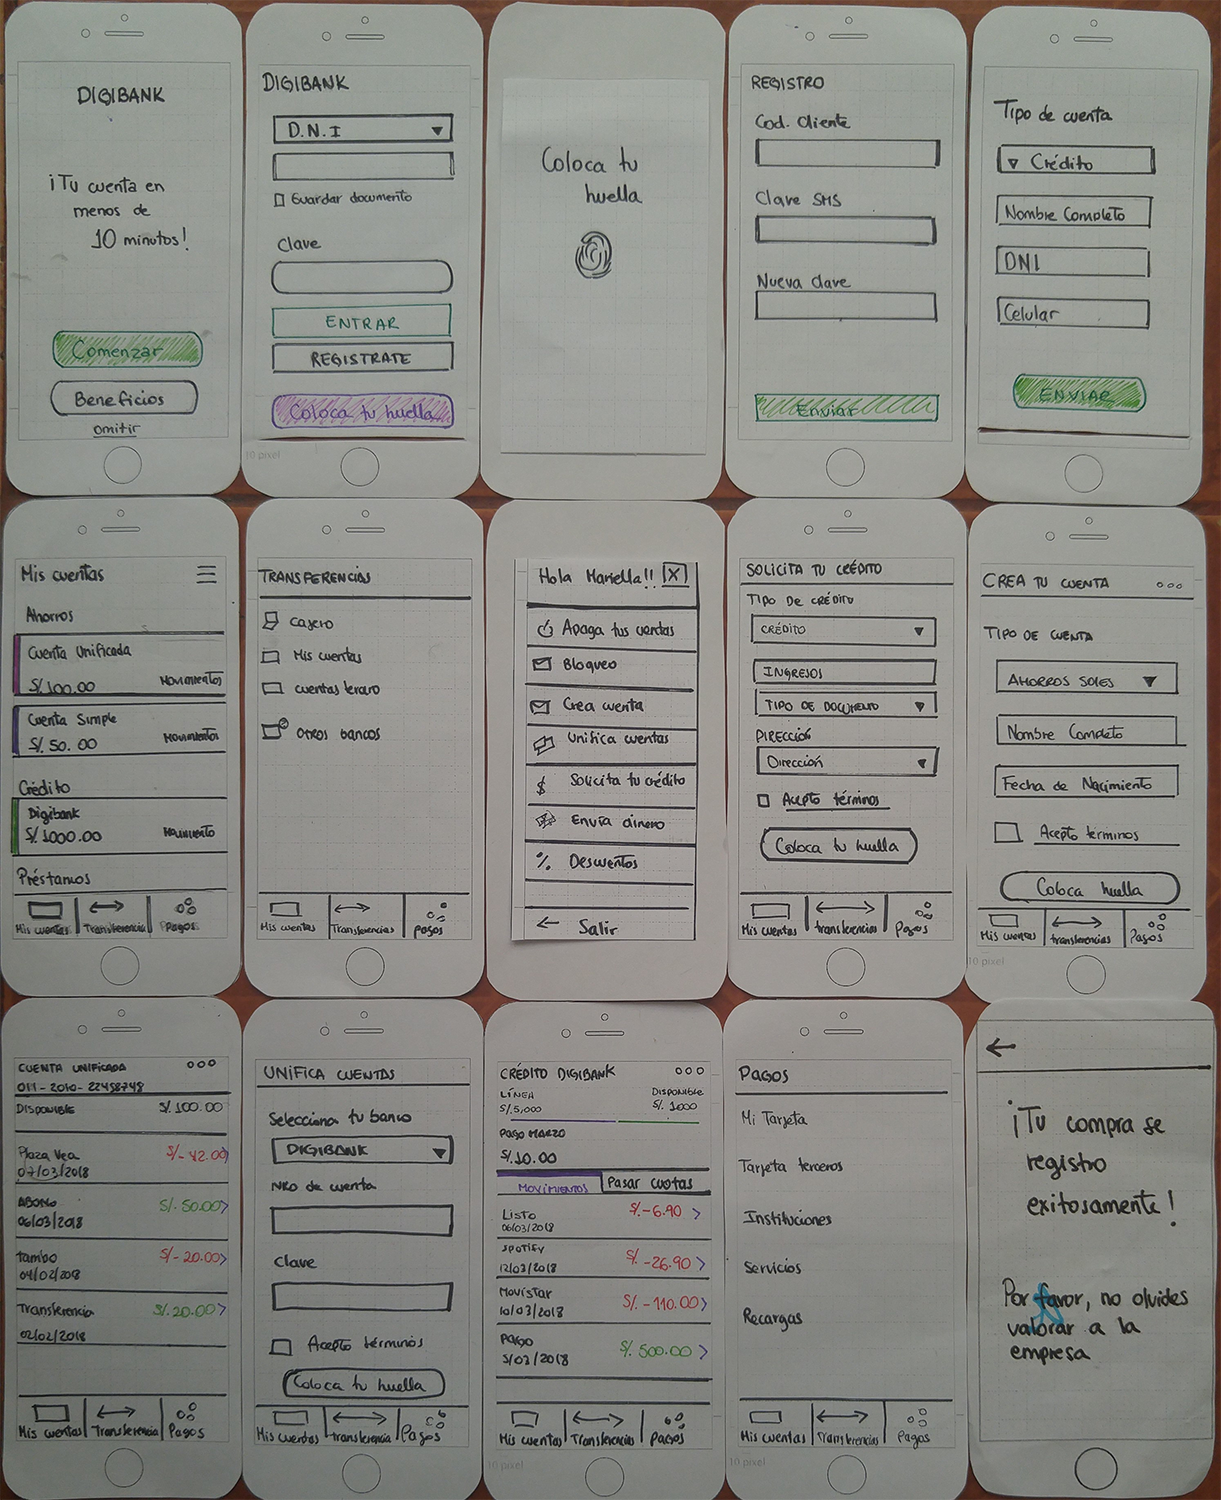 DIGIBANK
¡Tu cuenta en
menos de
10 minutos!
Comenzar
Beneficios
omitir
DIGIBANK
D.N.I
Guardar documento
Clave
ENTRAR
REGISTRATE
Coloca tu huella
10 pixel
Coloca tu
huella
REGISTRO
Cod. Cliente
Clave SMS
Nueva clave
Enviar
Tipo de cuenta
Crédito
Nombre Completo
DNI
Celular
ENVIAR
Mis cuentas
Ahorros
Cuenta Unificada
S/.100.00 Movimientos
Cuenta Simple
S/.50.00 Movimientos
Crédito
Digibank
S/.1000.00 Movimiento
Préstamos
Mis cuentas Transferencia Pagos
TRANSFERENCIAS
Cajero
Mis cuentas
cuentas tercero
Otros bancos
Mis cuentas Transferencias Pagos
Hola Mariella!! X
Apaga tus cuentas
Bloqueo
Crea cuenta
Unifica cuentas
$ Solicita tu crédito
Envía dinero
% Descuentos
Salir
SOLICITA TU CRÉDITO
TIPO DE CRÉDITO
CRÉDITO
INGRESOS
TIPO DE DOCUMENTO
DIRECCIÓN
Dirección
Acepto términos
Coloca tu huella
Mis cuentas transferencias Pagos
CREA TU CUENTA
TIPO DE CUENTA
AHORROS SOLES
Nombre Completo
Fecha de Nacimiento
Acepto terminos
Coloca huella
Mis cuentas transferencias Pagos
10 pixel
CUENTA UNIFICADA
011-2010-22458748
DISPONIBLE S/.100.00
Plaza Vea S/-42.00
07/03/2018
ABONO S/.50.00
06/03/2018
tambo S/-20.00
04/02/2018
Transferencia S/.20.00
02/02/2018
Mis cuentas Transferencia Pagos
UNIFICA CUENTAS
Selecciona tu banco
DIGIBANK
NRO de cuenta
Clave
Acepto términos
Coloca tu huella
Mis cuentas transferencia Pagos
CRÉDITO DIGIBANK
LÍNEA DISPONIBLE
S/.5,000 S/. 1000
PAGO MARZO
S/.10.00
MOVIMIENTOS Pasar cuotas
LISTO S/.-6.90
06/03/2018
SPOTIFY S/.-26.90
12/03/2018
MOVISTAR S/.-110.00
10/03/2018
PAGO S/.500.00
5/03/2018
Mis cuentas Transferencias Pagos
10 pixel
PAGOS
Mi Tarjeta
Tarjeta terceros
Instituciones
Servicios
Recargas
Mis cuentas Transferencias Pagos
10 pixel
¡Tu compra se
registro
exitosamente!
Por favor, no olvides
valorar a la
empresa